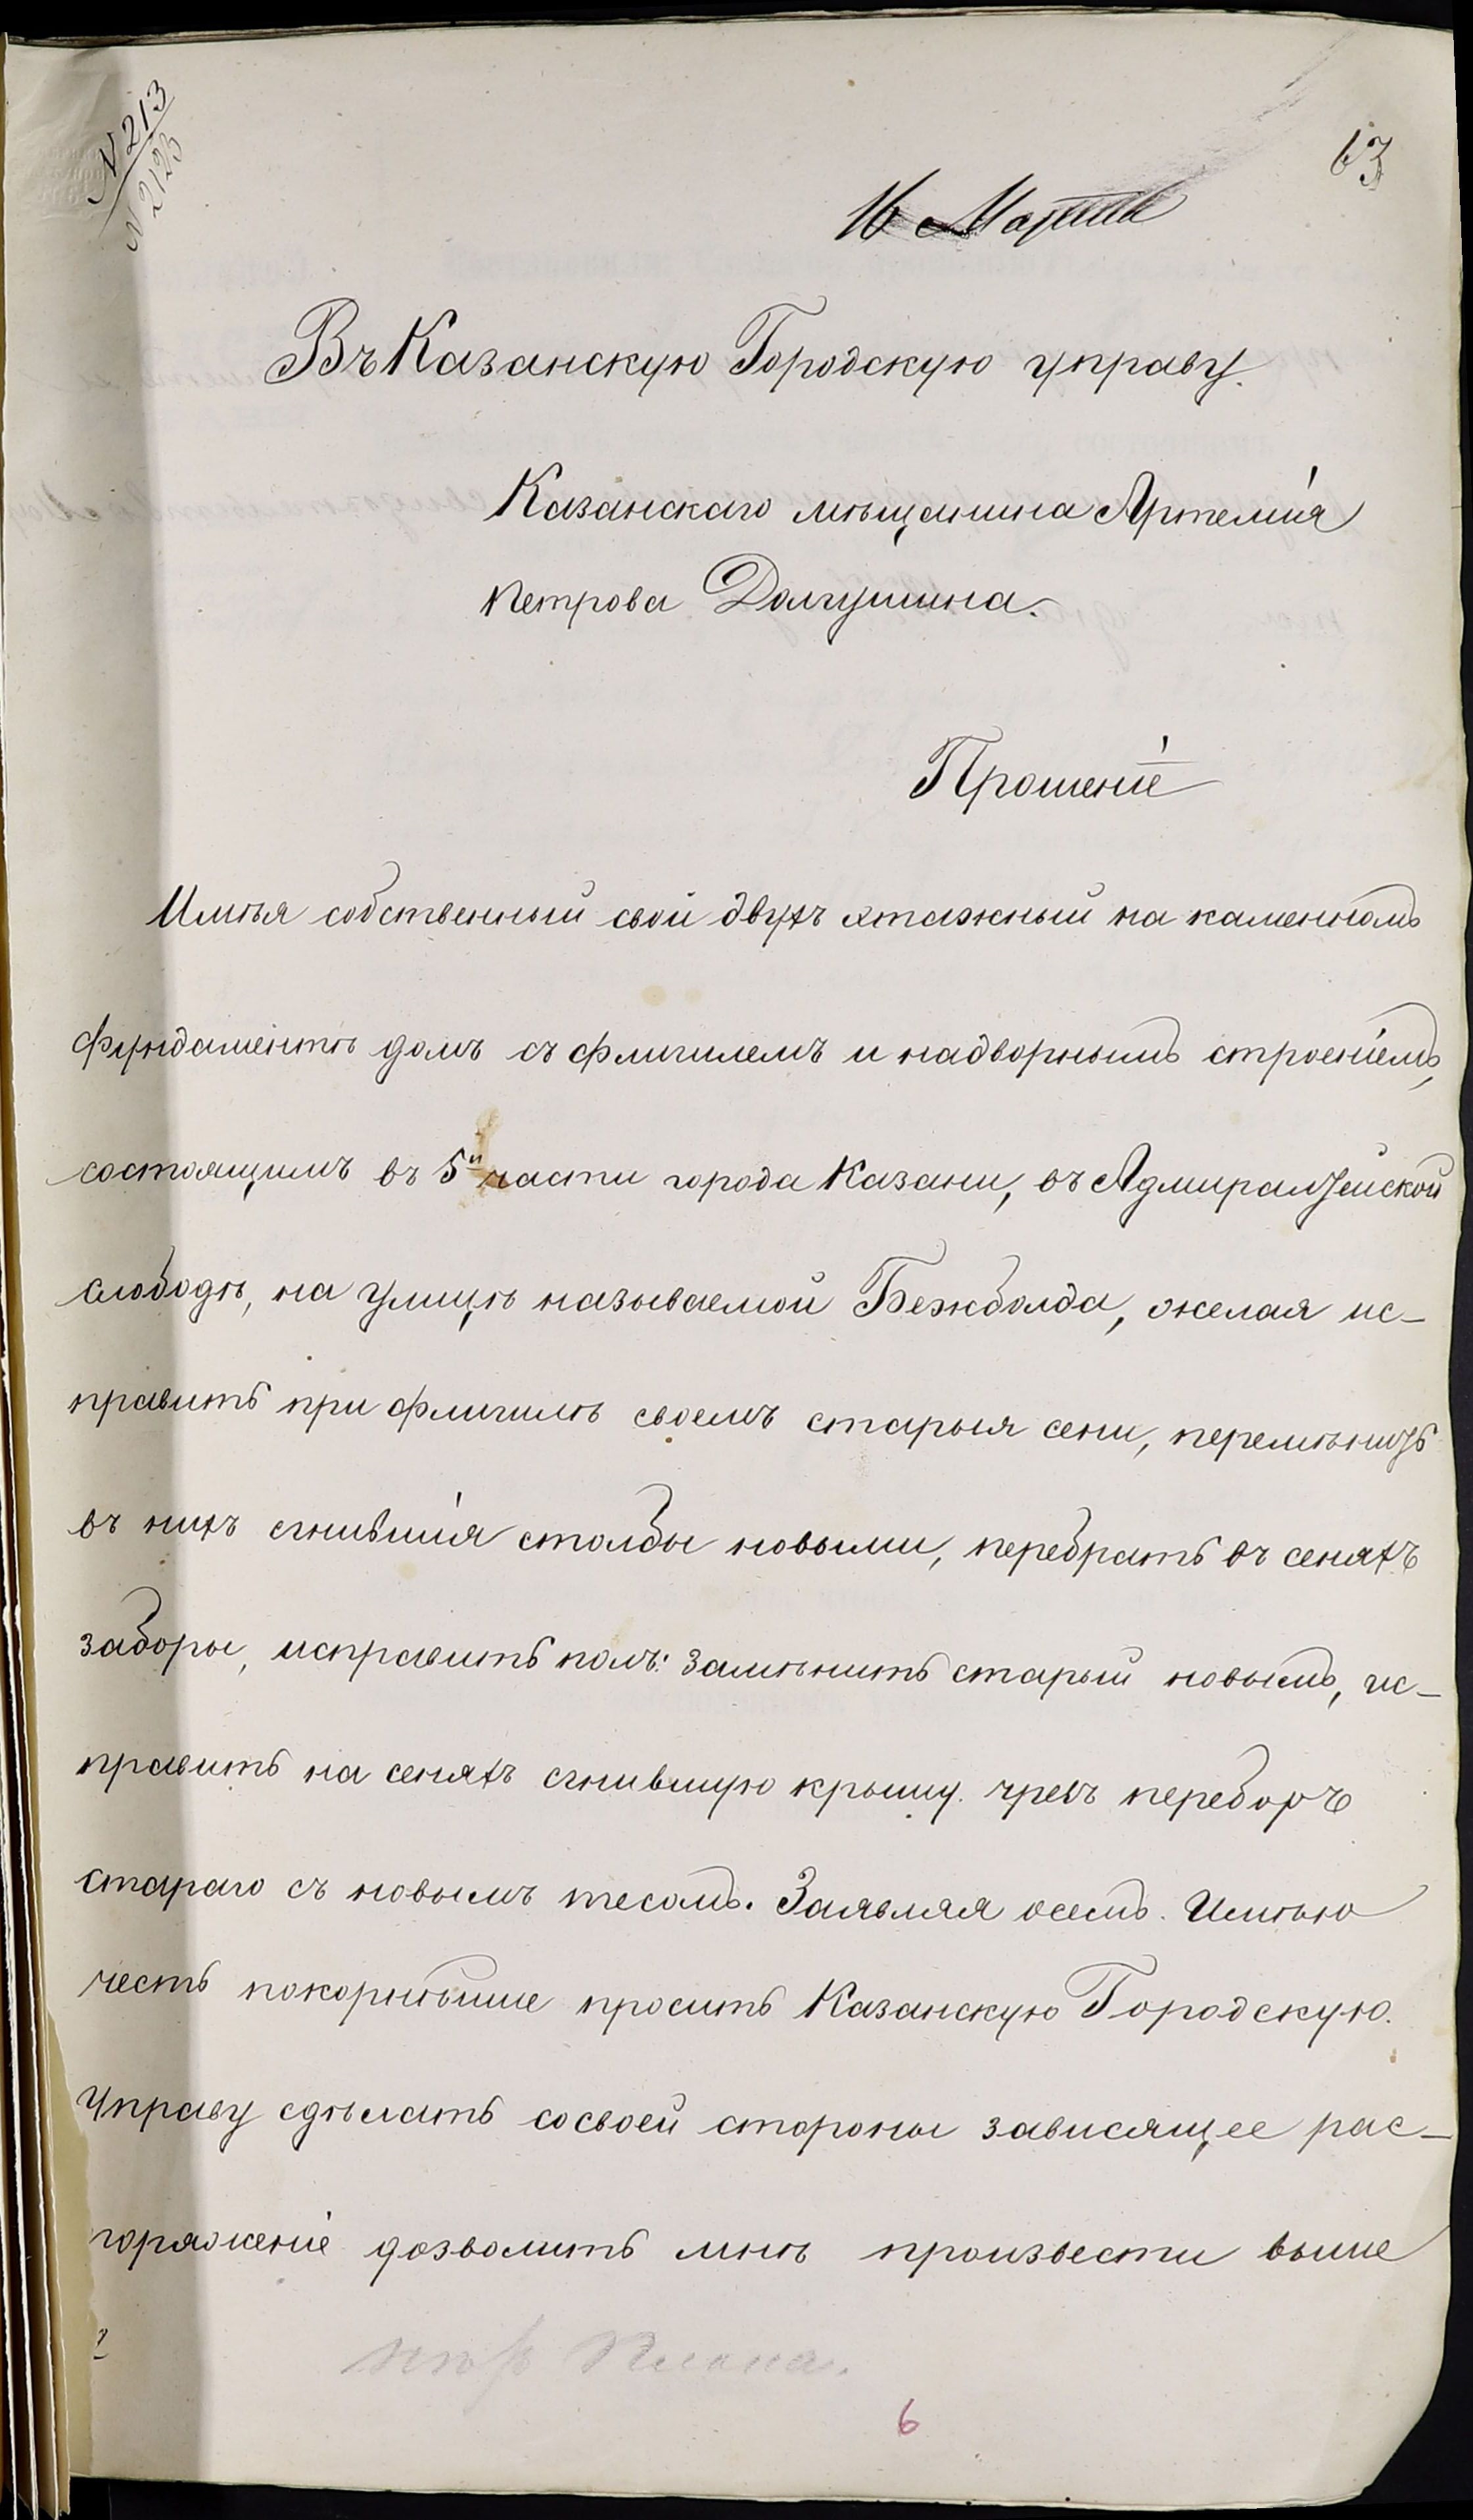 N 213
N 2123
63
16 Марта
Въ Казанскую Городскую управу.
Казанскаго мѣщанина Артемія
Петрова Долгушина.
Прошеніе
Имѣя собственный свой двухъ этажный на каменномъ
фундаментѣ домъ съ флигилемъ и надворнымъ строеніемъ,
состоящимъ въ 5й части города Казани, въ Адмиралтейской
слободѣ, на улицѣ называемой Бежболда, желая ис-
править при флигилѣ своемъ старыя сени, перемѣнить
въ нихъ сгнившія столбы новыми, перебрать въ сеняхъ
заборы, исправить полъ: замѣнить старый новымъ, ис-
править на сеняхъ сгнившую крышу. чрезъ переборъ
стараго съ новымъ тесомъ. Заявляя осемъ. Имѣю
честь покорнѣйше просить Казанскую Городскую.
Управу сдѣлать со своей стороны зависящее рас-
поряженіе дозволить мнѣ произвести выше
нѣтъ плана.
6